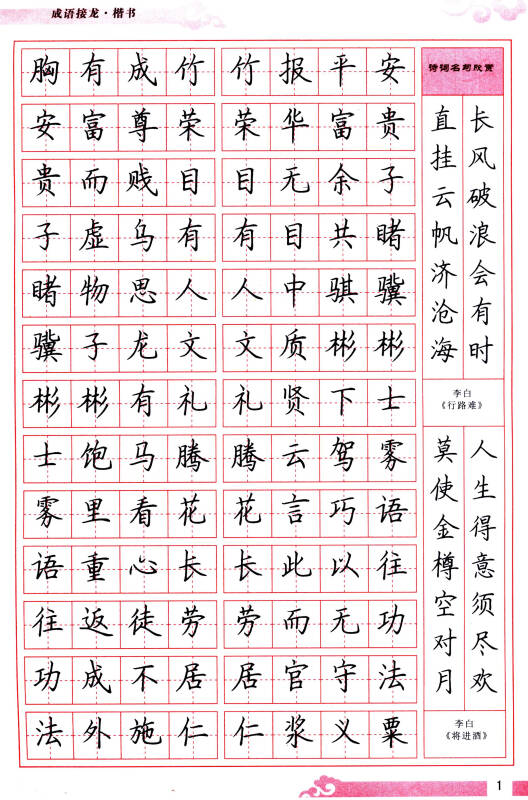 成语接龙·楷书
胸有成竹 竹报平安
安富尊荣 荣华富贵
贵而贱目 目无余子
子虚乌有 有目共睹
睹物思人 人中骐骥
骥子龙文 文质彬彬
彬彬有礼 礼贤下士
士饱马腾 腾云驾雾
雾里看花 花言巧语
语重心长 长此以往
往返徒劳 劳而无功
功成不居 居官守法
法外施仁 仁浆义粟
诗词名句欣赏
长风破浪会有时
直挂云帆济沧海
李白
《行路难》
人生得意须尽欢
莫使金樽空对月
李白
《将进酒》
1